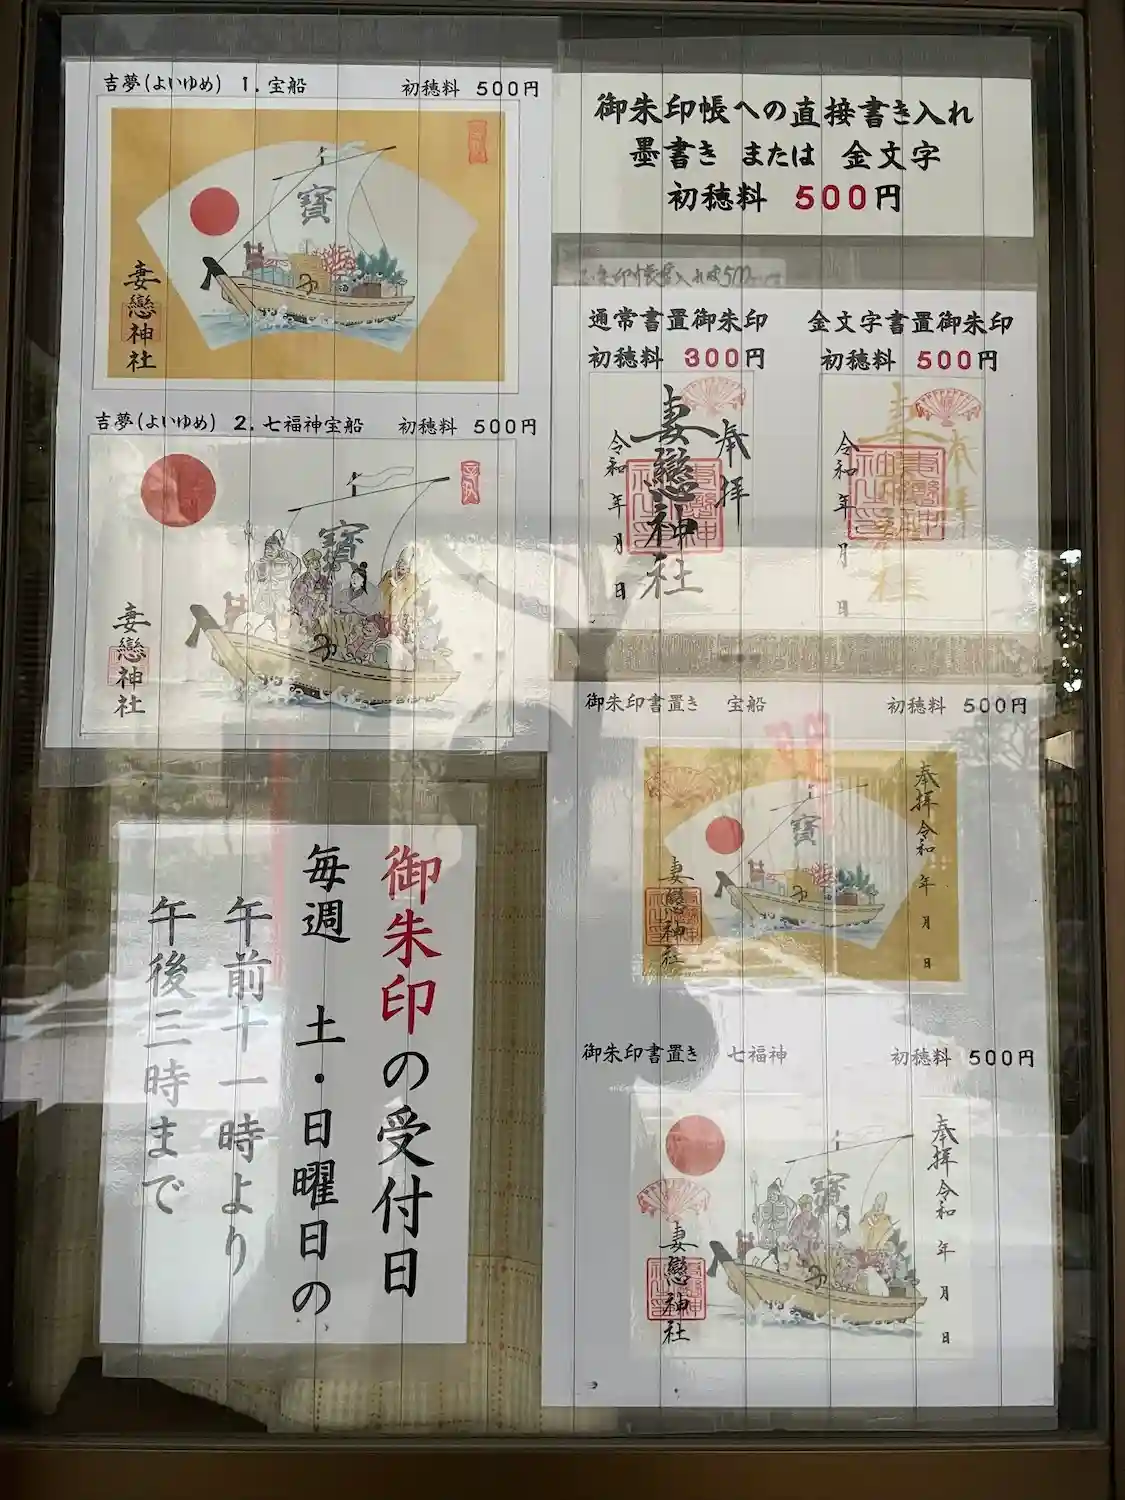 吉夢(よいゆめ) 1.宝船 初穂料 500円
寶
妻戀神社
吉夢(よいゆめ) 2.七福神宝船 初穂料 500円
寶
妻戀神社
御朱印帳への直接書き入れ
墨書き または 金文字
初穂料 500円
通常書置御朱印
初穂料 300円
奉拝
妻戀神社
令和 年 月 日
金文字書置御朱印
初穂料 500円
奉拝
妻戀神社
令和 年 月 日
御朱印書置き 宝船 初穂料 500円
奉拝 令和 年 月 日
寶
妻戀神社
御朱印書置き 七福神 初穂料 500円
奉拝 令和 年 月 日
寶
妻戀神社
御朱印の受付日
毎週 土・日曜日の
午前十一時より
午後三時まで